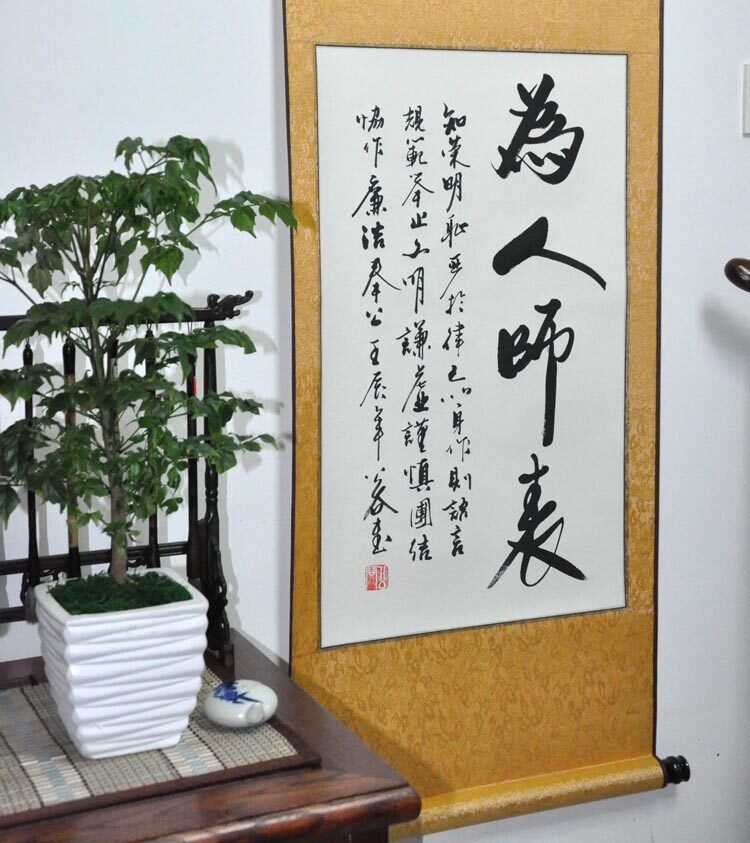 為人師表
知榮明恥 嚴於律己 以身作則 語言
規範 舉止文明 謙虛謹慎 團结
協作 廉洁奉公 壬辰年 書